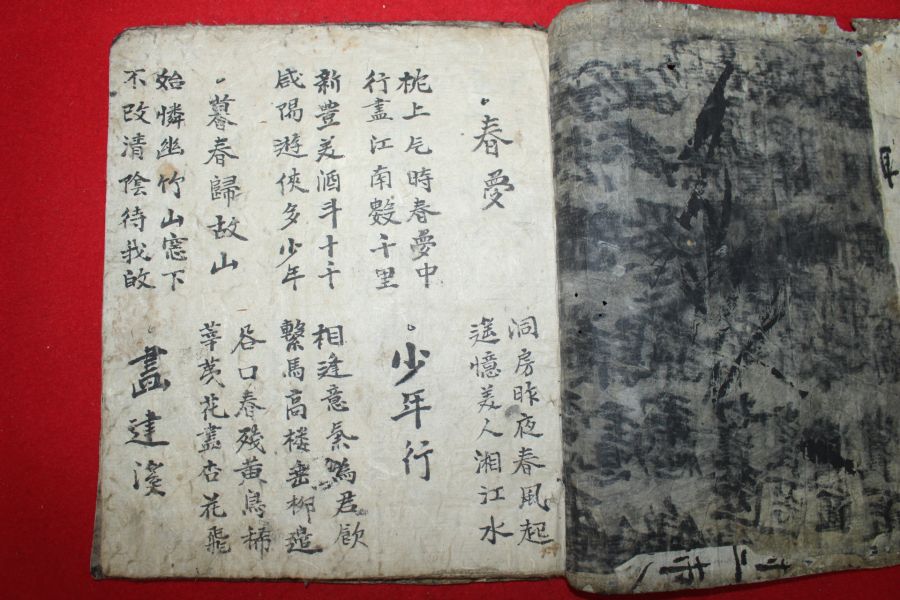 春夢
洞房昨夜春風起
遥憶美人湘江水
枕上片時春夢中
行盡江南數千里
少年行
新豊美酒斗十千
咸陽遊俠多少年
相逢意氣為君飮
繫馬高楼垂柳邊
暮春歸故山
谷口春殘黄鳥稀
莘荑花盡杏花飛
始憐幽竹山窓下
不改清陰待我皈
畵建溪